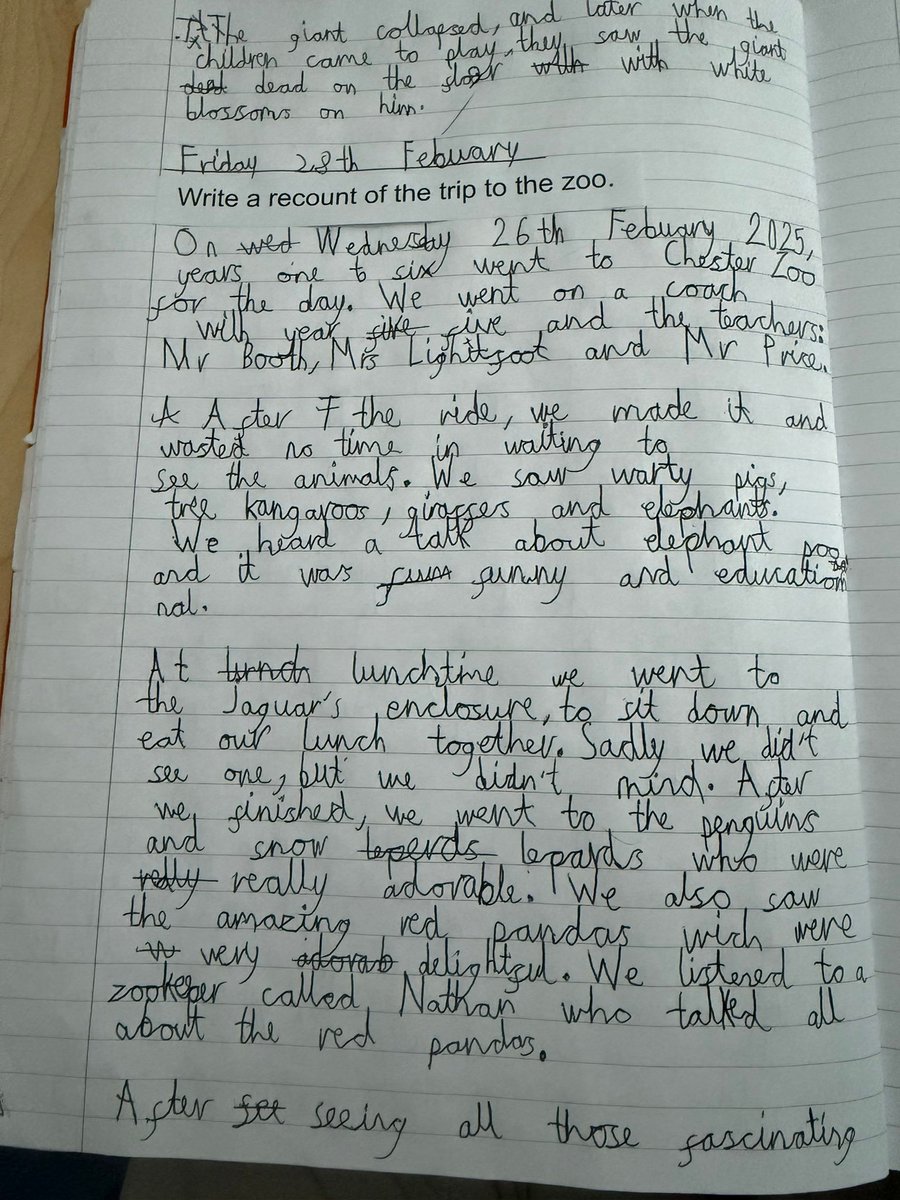 The giant collapsed, and later when the
children came to play, they saw the giant
dead dead on the floor with with white
blossoms on him.
Friday 28th Febuary
Write a recount of the trip to the zoo.
On wed Wednesday 26th Febuary 2025,
years one to six went to Chester Zoo
for the day. We went on a coach
with year five and the teachers:
Mr Booth, Mrs Lightfoot and Mr Price.
A After T the ride, we made it and
wasted no time in waiting to
see the animals. We saw warty pigs,
tree kangaroos, giraffes and elephants.
We heard a talk about elephant poo
and it was funn funny and education
nal.
At lunch lunchtime we went to
the Jaguar's enclosure, to sit down and
eat our lunch together. Sadly we did't
see one, but we didn't mind. After
we finished, we went to the penguins
and snow leperds lepards who were
really really adorable. We also saw
the amazing red pandas wich were
very adorab delightful. We listened to a
zookeeper called Nathan who talked all
about the red pandas.
After see seeing all those fascinating